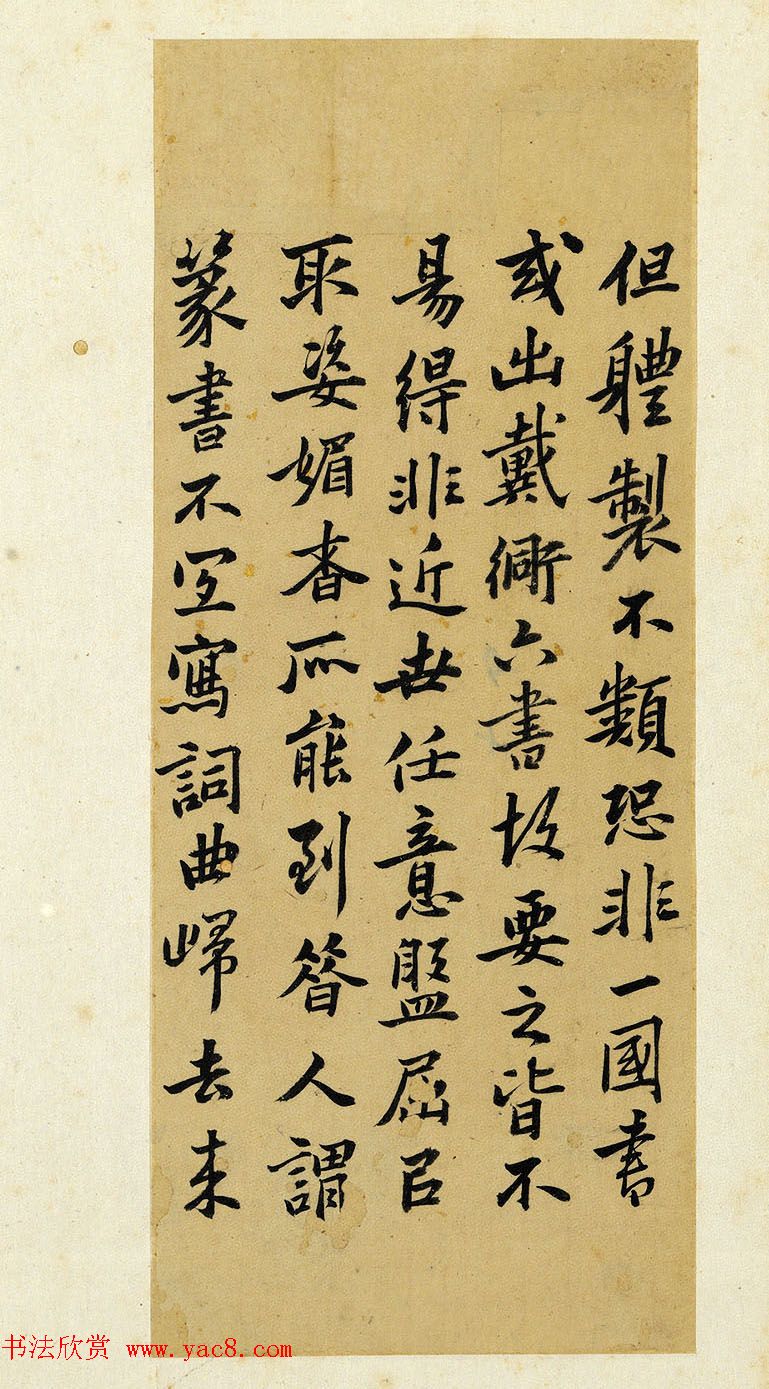 但體製不類恐非一國書
或出戴衕六書故要之皆不
易得非近世任意盤屈以
取姿媚者所能到昔人謂
篆書不宜寫詞曲歸去來
书法欣赏 www.yac8.com